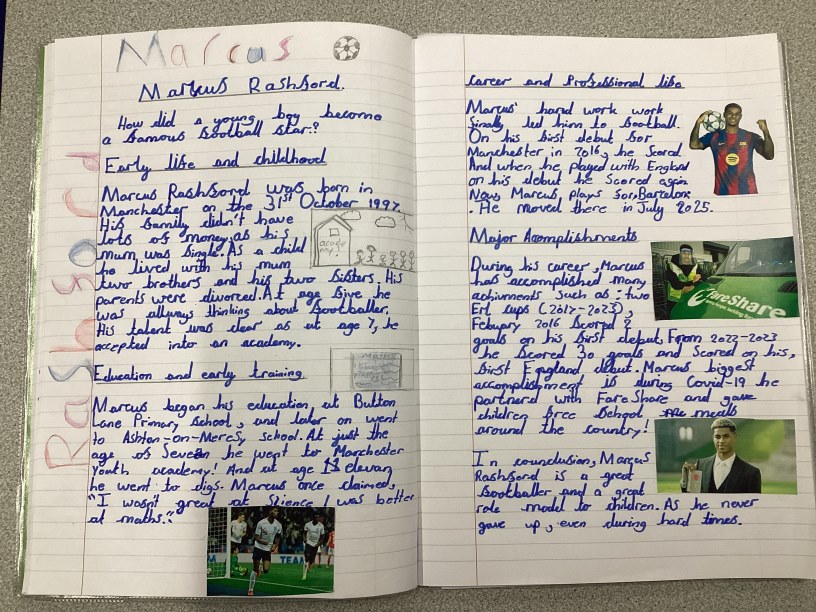 Marcus
Rashford
Marcus Rashford.
How did a young boy become
a famous football star?
Early life and childhood
Marcus Rashford was born in
Manchester on the 31st October 1997.
His family didn't have
lots of money, as his
mum was single. As a child
he lived with his mum
two brothers and his two sisters. His
parents were divorced. At age five he
was allways thinking about footballer.
His talent was clear as at age 7, he
accepted into an academy.
Education and early training
Marcus began his education at Button
Lane Primary School, and later on went
to Ashton-on-Mersey school. At just the
age of Seven he went to Manchester
Youth academy! And at age elevan
he went to digs. Marcus once claimed,
"I wasn't great at Sience, I was better
at maths."
TEAM
Career and Professional life
Marcus' hard work work
finally led him to football.
On his first debut for
Manchester in 2016, he scored.
And when he played with England
on his debut he scored again
Now, Marcus plays for Barcelona
. He moved there in July 2025.
Major Acomplishments
During his career, Marcus
has accomplished many
achivments such as: two
Erl cups (2017-2023),
Febuary 2016 Scored 2
goals on his first debut, From 2022-2023
he scored 30 goals and scored on his,
first England debut. Marcus biggest
accomplishment is during Covid-19 he
partnerd with FareShare and gave
children free Schol meals
around the country!
FareShare
In counclusion, Marcus
Rashford is a great
footballer and a great
role model to children. As he never
gave up, even during hard times.